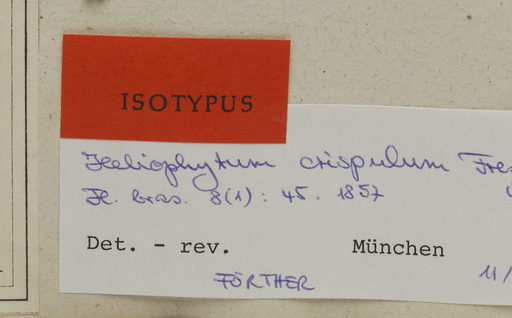 ISOTYPUS
Heliophytum crispulum Fres
Fl. bras. 8(1): 45. 1857
Det. - rev. München
FÖRTHER 11/